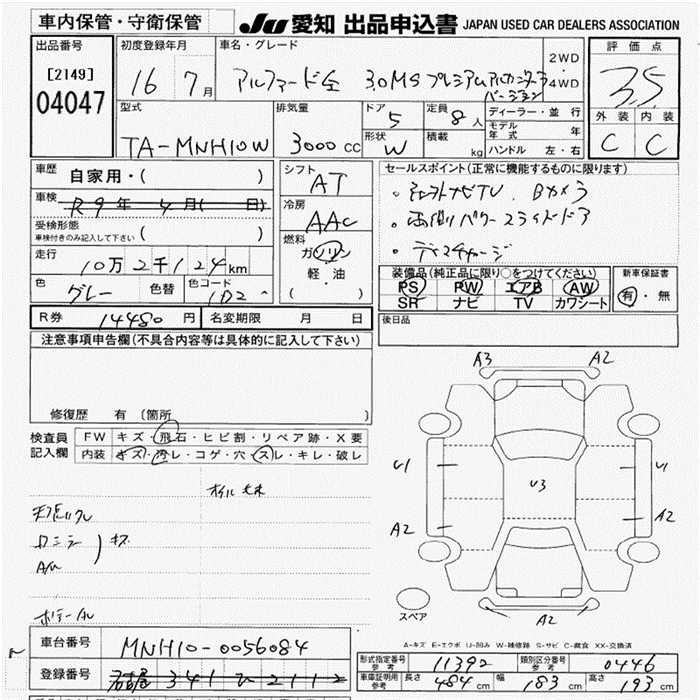 車内保管・守衛保管
JU 愛知 出品申込書 JAPAN USED CAR DEALERS ASSOCIATION
出品番号
[2149]
04047
初度登録年月
16 7月
車名・グレード
アルファード 3.0MS プレミアムアルカンターラバージョン
2WD・4WD
評価点
3.5
外装 内装
C C
型式
TA-MNH10W
排気量
3000 CC
ドア
5
形状
W
定員
8人
積載
kg
ディーラー・並行
モデル年式 年
ハンドル 左・右
車歴
自家用・( )
車検
R9年 4月( 日)
受検形態
車検付きのみ記入して下さい ( )
走行
10万2千124km
色
グレー
色替
色コード
1D2
シフト
AT
冷房
AAC
燃料
ガソリン
軽・油
( )
セールスポイント(正常に機能するものに限ります)
・ナビTV. Bカメラ
・両側パワースライドドア
装備品(純正品に限り○をつけてください)
PS PW エアB AW
SR ナビ TV カワシート
新車保証書
有・無
R券 14480円
名変期限 月 日
後日品
注意事項申告欄(不具合内容等は具体的に記入して下さい)
修復歴 有 (箇所 )
検査員記入欄
FW キズ・飛石・ヒビ割・リペア跡・X要
内装 キズ・汚レ・コゲ・穴・スレ・キレ・破レ
キズ
A3 A2
U1 U3 U1
A2 A2
A2
スペア
A-キズ E-エクボ U-凹み W-補修跡 S-サビ C-腐食 XX-交換済
車台番号
MNH10-0056084
登録番号
名古屋 341 ひ 2112
形式指定番号 参考
11392
類別区分番号 参考
0446
車庫証明用 参考
長さ 484cm 幅 183cm 高さ 193cm